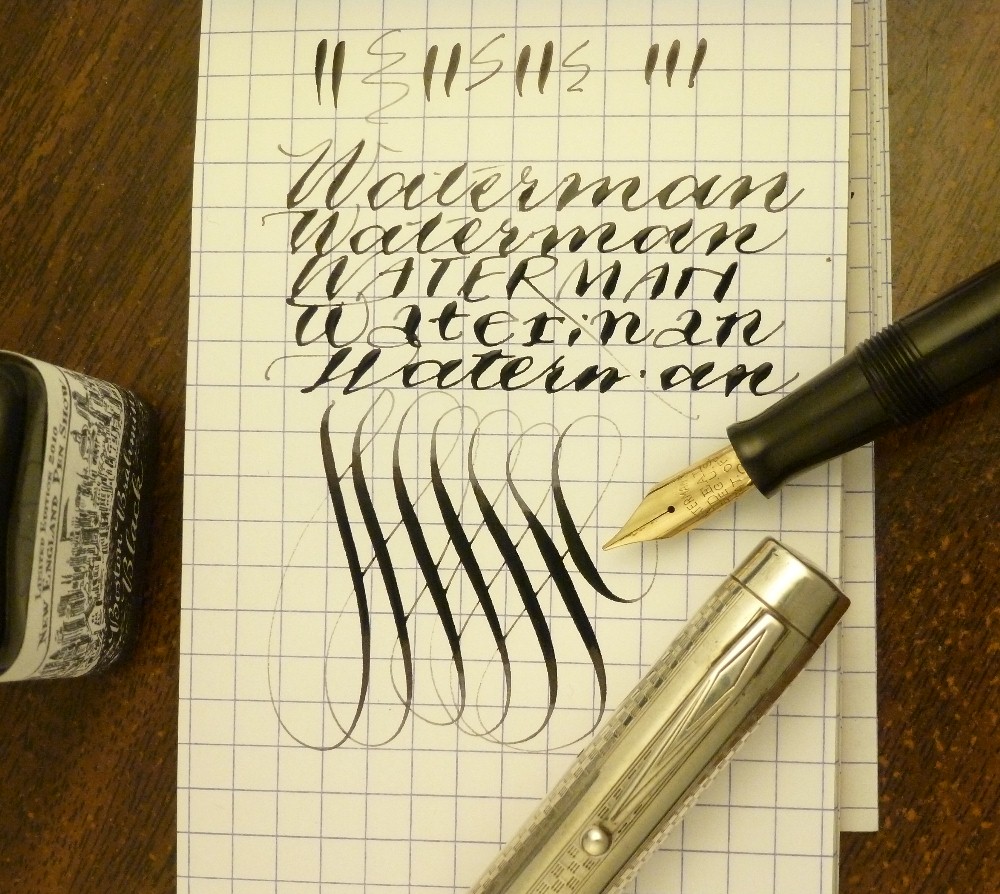 Waterman
Waterman
WATERMAN
Waterman
Waterman
LIMITED EDITION 2010
NEW ENGLAND PEN SHOW
Black